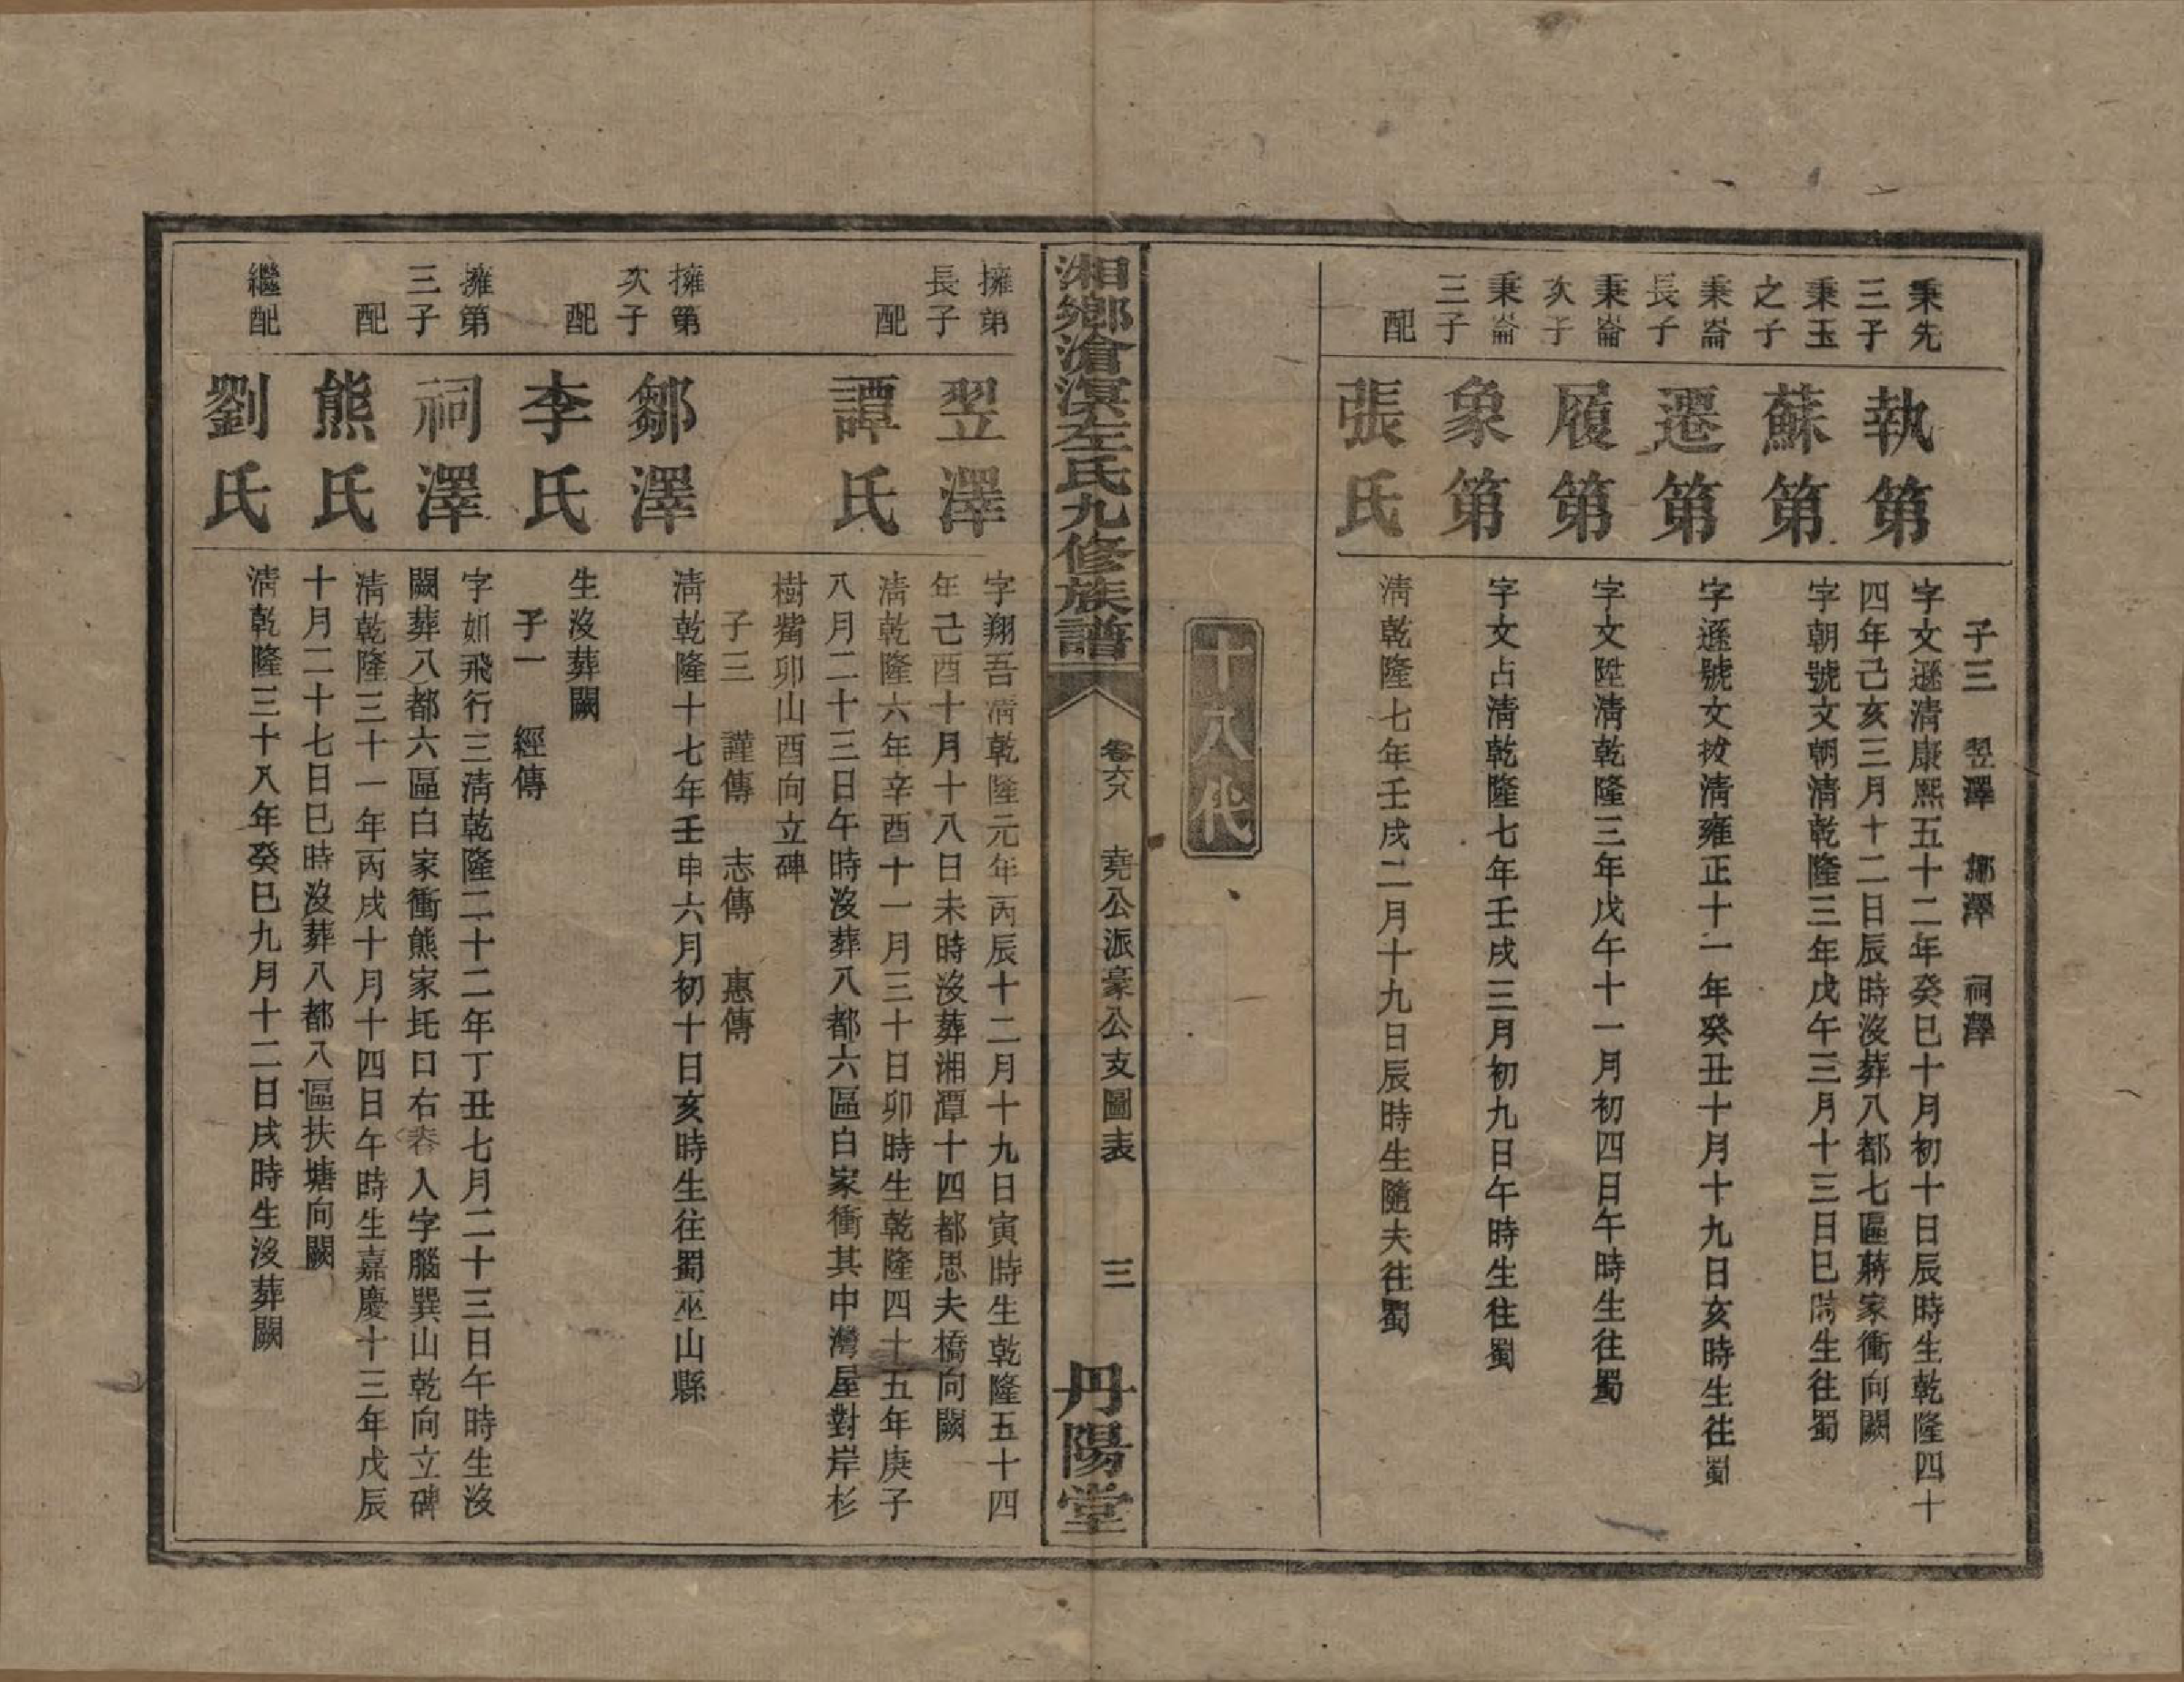 子三 翌澤 鄒澤 祠澤
秉先三子
執第
字文遜清康熙五十二年癸巳十月初十日辰時生乾隆四十
四年己亥三月十二日辰時沒葬八都七區蔣家衝向闕
秉玉之子
蘇第
字朝號文朝清乾隆三年戊午三月十三日巳時生往蜀
秉崙長子
遷第
字遜號文拔清雍正十一年癸丑十月十九日亥時生往蜀
秉崙次子
履第
字文陞清乾隆三年戊午十一月初四日午時生往蜀
秉崙三子
象第
字文占清乾隆七年壬戌三月初九日午時生往蜀
配
張氏
清乾隆七年壬戌二月十九日辰時生隨夫往蜀
十八代
湘鄉滄溟左氏九修族譜
卷六八 堯公派豪公支圖表 三
丹陽堂
擁第長子
翌澤
字翔吾清乾隆元年丙辰十二月十九日寅時生乾隆五十四
年己酉十月十八日未時沒葬湘潭十四都思夫橋向闕
配
譚氏
清乾隆六年辛酉十一月三十日卯時生乾隆四十五年庚子
八月二十三日午時沒葬八都六區白家衝其中灣屋對岸杉
樹觜卯山酉向立碑
子三 謹傳 志傳 惠傳
擁第次子
鄒澤
清乾隆十七年壬申六月初十日亥時生往蜀巫山縣
配
李氏
生沒葬闕
子一 經傳
擁第三子
祠澤
字如飛行三清乾隆二十二年丁丑七月二十三日午時生沒
闕葬八都六區白家衝熊家托口右 人字腦巽山乾向立碑
配
熊氏
清乾隆三十一年丙戌十月十四日午時生嘉慶十三年戊辰
十月二十七日巳時沒葬八都八區扶塘向闕
繼配
劉氏
清乾隆三十八年癸巳九月十二日戌時生沒葬闕